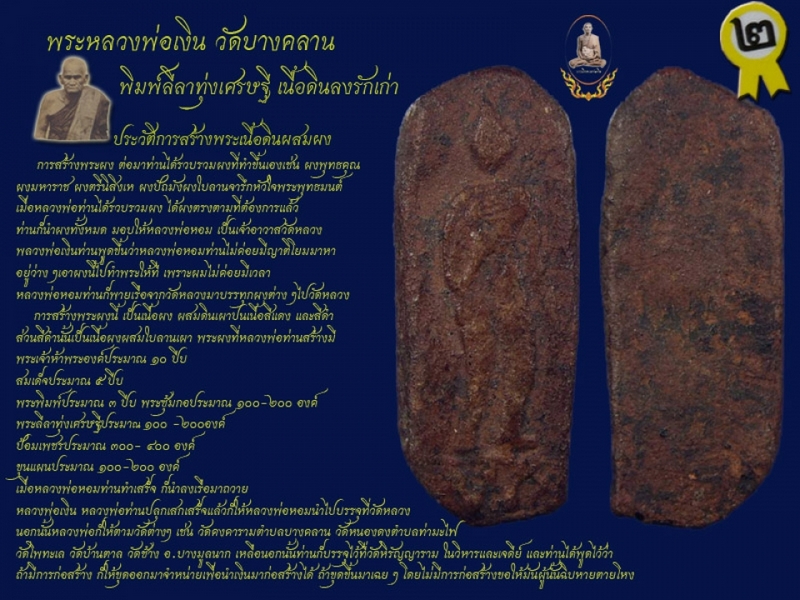 ๒
พระหลวงพ่อเงิน วัดบางคลาน
พิมพ์ลีลาทุ่งเศรษฐี เนื้อดินลงรักเก่า
ประวัติการสร้างพระเนื้อดินผสมผง
การสร้างพระผง ต่อมาท่านได้รวบรวมผงที่ทำขึ้นเองเช่น ผงพุทธคุณ
ผงมหาราช ผงตรีนิสิงเห ผงปัถมังผงใบลานจารึกหัวใจพระพุทธมนต์
เมื่อหลวงพ่อท่านได้รวบรวมผง ได้ผงตรงตามที่ต้องการแล้ว
ท่านก็นำผงทั้งหมด มอบให้หลวงพ่อหอม เป็นเจ้าอาวาสวัดหลวง
พลวงพ่อเงินท่านพูดขึ้นว่าหลวงพ่อหอมท่านไม่ค่อยมีญาติโยมมาหา
อยู่ว่าง ๆเอาผงนี้ไปทำพระให้ที เพราะผมไม่ค่อยมีเวลา
หลวงพ่อหอมท่านก็พายเรือจากวัดหลวงมาบรรทุกผงต่าง ๆไปวัดหลวง
การสร้างพระผงนี้ เป็นเนื้อผง ผสมดินเผาเป็นเนื้อสีแดง และสีดำ
ส่วนสีดำนั้นเป็นเนื้อผงผสมใบลานเผา พระผงที่หลวงพ่อท่านสร้างมี
พระเจ้าห้าพระองค์ประมาณ ๑๐ ปีบ
สมเด็จประมาณ ๕ ปีบ
พระพิมพ์ประมาณ ๓ ปีบ พระซุ้มกอประมาณ ๑๐๐-๒๐๐ องค์
พระลีลาทุ่งเศรษฐีประมาณ ๑๐๐ -๒๐๐องค์
ป้อมเพชรประมาณ ๓๐๐- ๔๐๐ องค์
ขุนแผนประมาณ ๑๐๐-๒๐๐ องค์
เมื่อหลวงพ่อหอมท่านทำเสร็จ ก็นำลงเรือมาถวาย
หลวงพ่อเงิน หลวงพ่อท่านปลุกเสกเสร็จแล้วก็ให้หลวงพ่อหอมนำไปบรรจุที่วัดหลวง
นอกนั้นหลวงพ่อก็ให้ตามวัดต่างๆ เช่น วัดคงคารามตำบลบางคลาน วัดหนองดงตำบลท่ามะไฟ
วัดโพทะเล วัดบ้านตาล วัดช้าง อ.บางมูลนาก เหลือนอกนั้นท่านก็บรรจุไว้ที่วัดหิรัญญาราม ในวิหารและเจดีย์ และท่านได้พูดไว้ว่า
ถ้ามีการก่อสร้าง ก็ให้ขุดออกมาจำหน่ายเพื่อนำเงินมาก่อสร้างได้ ถ้าขุดขึ้นมาเฉย ๆ โดยไม่มีการก่อสร้างขอให้มันผู้นั้นฉิบหายตายโหง